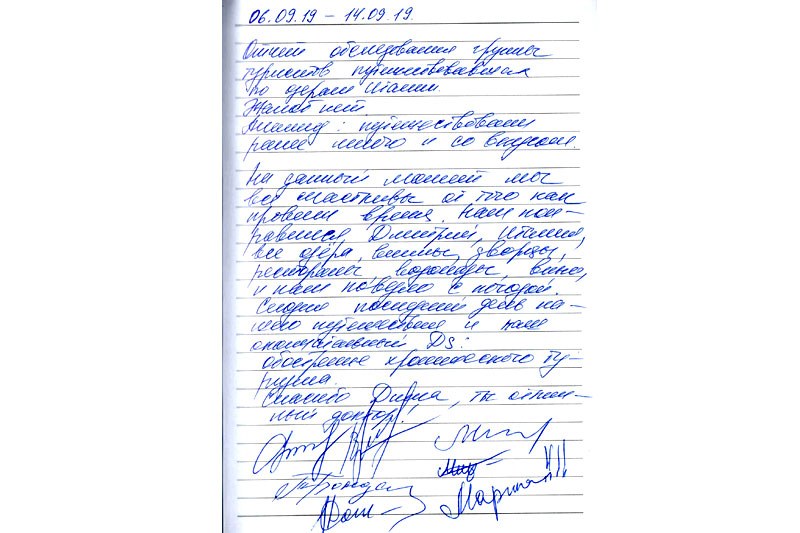 06.09.19 – 14.09.19.
Отчет обследования группы
туристов путешествовавших
по озерам Италии.
Жалоб нет
Анамнез: путешествовали
ранее много и со вкусом.
На данный момент мы
все счастливы от того как
провели время. Нам пон-
равился Дмитрий, Италия,
все озёра, виллы, дворцы,
рестораны, водопады, вино,
и нам повезло с погодой.
Сегодня последний день на-
шего путешествия и наш
окончательный Ds:
обострение хронического ту-
ризма.
Спасибо Дима, ты отлич-
ный доктор!
Марина!!!